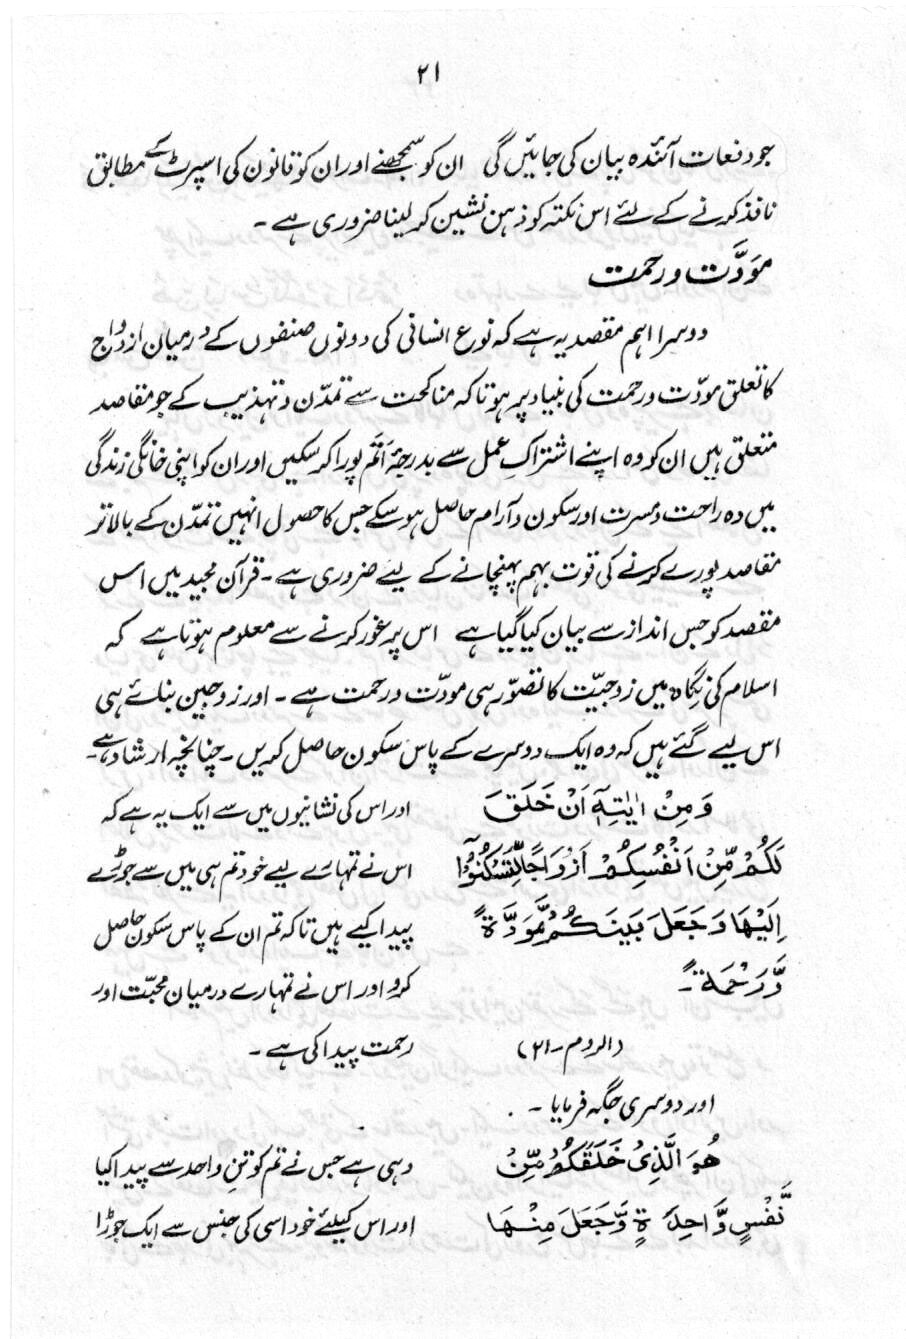 ۲۱
جو دفعات آئندہ بیان کی جائیں گی ان کو سمجھنے اور ان کو قانون کی اسپرٹ کے مطابق
نافذ کرنے کے لئے اس نکتہ کو ذہن نشین کر لینا ضروری ہے ۔
مَوَدَّت و رحمت
دوسرا اہم مقصد یہ ہے کہ نوع انسانی کی دونوں صنفوں کے درمیان ازدواج
کا تعلق مودّت و رحمت کی بنیاد پر ہو تاکہ مناکحت سے تمدّن و تہذیب کے جو مقاصد
متعلق ہیں ان کو وہ اپنے اشتراکِ عمل سے بدرجۂ اَتَم پورا کر سکیں اور ان کو اپنی خانگی زندگی
میں وہ راحت و مسرت اور سکون و آرام حاصل ہو سکے جس کا حصول انہیں تمدّن کے بالاتر
مقاصد پورے کرنے کی قوت بہم پہنچانے کے لیے ضروری ہے ۔ قرآن مجید میں اس
مقصد کو جس انداز سے بیان کیا گیا ہے اس پر غور کرنے سے معلوم ہوتا ہے کہ
اسلام کی نگاہ میں زوجیّت کا تصوّر ہی مودّت و رحمت ہے ۔ اور زوجین بنائے ہی
اس لیے گئے ہیں کہ وہ ایک دوسرے کے پاس سکون حاصل کریں ۔ چنانچہ ارشاد ہے ۔
وَمِنْ اٰیٰتِہٖٓ اَنْ خَلَقَ اور اس کی نشانیوں میں سے ایک یہ ہے کہ
لَکُمْ مِّنْ اَنْفُسِکُمْ اَزْوَاجًا لِّتَسْکُنُوْٓا اس نے تمہارے لیے خود تم ہی میں سے جوڑے
اِلَیْھَا وَجَعَلَ بَیْنَکُمْ مَّوَدَّۃً پیدا کیے ہیں تاکہ تم ان کے پاس سکون حاصل
وَّرَحْمَۃً ۔ کرو اور اس نے تمہارے درمیان محبّت اور
(الروم ۔ ۲۱) رحمت پیدا کی ہے ۔
اور دوسری جگہ فرمایا ۔
ھُوَ الَّذِیْ خَلَقَکُمْ مِّنْ وہی ہے جس نے تم کو تنِ واحد سے پیدا کیا
نَّفْسٍ وَّاحِدَۃٍ وَّجَعَلَ مِنْھَا اور اس کیلئے خود اسی کی جنس سے ایک جوڑا